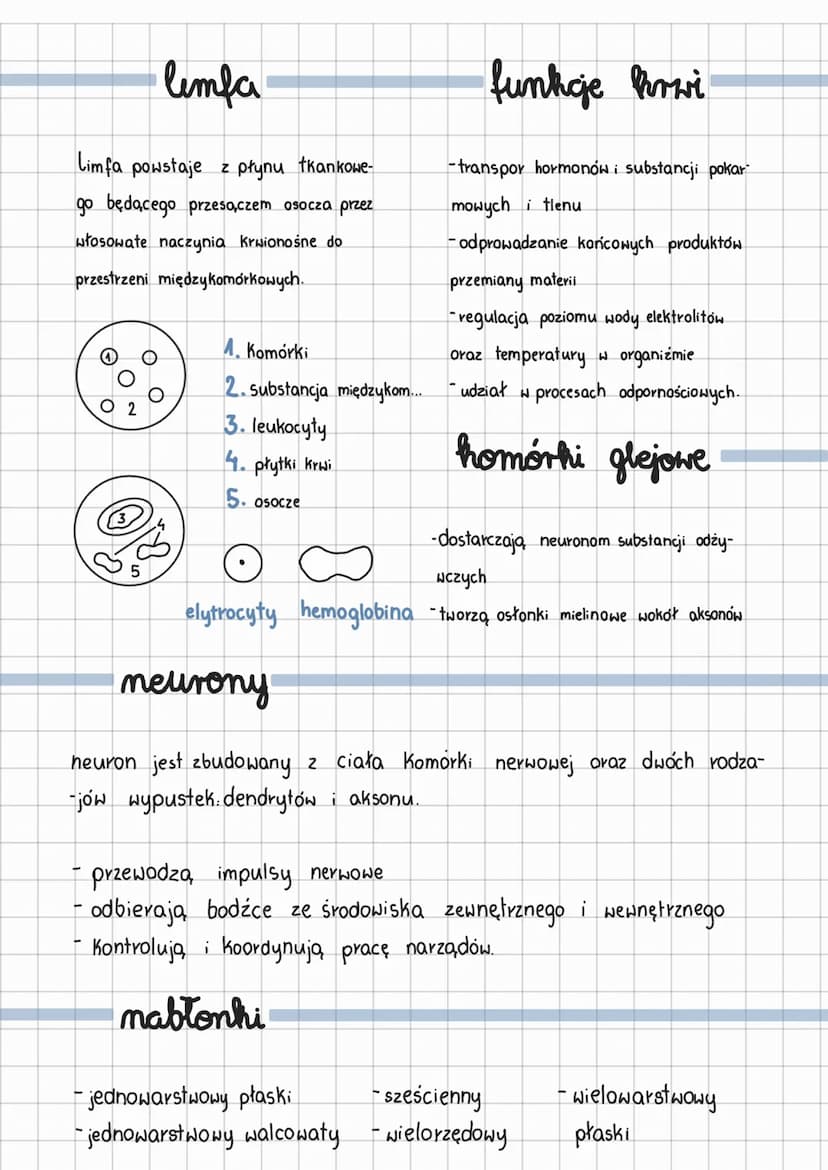 limfa
limfa powstaje z płynu tkankowe-
go będącego przesączem osocza przez
włosowate naczynia krwionośne do
przestrzeni międzykomórkowych.
1 2
1. komórki
2. substancja międzykom...
3. leukocyty
4. płytki krwi
5. osocze
3 4 5
elytrocyty hemoglobina
funkcje krwi
-transpor hormonów i substancji pokar-
mowych i tlenu
-odprowadzanie końcowych produktów
przemiany materii
-regulacja poziomu wody elektrolitów
oraz temperatury w organiźmie
-udział w procesach odpornościowych.
komórki glejowe
-dostarczają neuronom substancji odży-
wczych
-tworzą osłonki mielinowe wokół aksonów
neurony
neuron jest zbudowany z ciała komórki nerwowej oraz dwóch rodza-
-jów wypustek: dendrytów i aksonu.
- przewodzą impulsy nerwowe
- odbierają bodźce ze środowiska zewnętrznego i wewnętrznego
- kontrolują i koordynują pracę narządów.
nabłonki
- jednowarstwowy płaski
- jednowarstwowy walcowaty
- sześcienny
- wielorzędowy
- wielowarstwowy
płaski